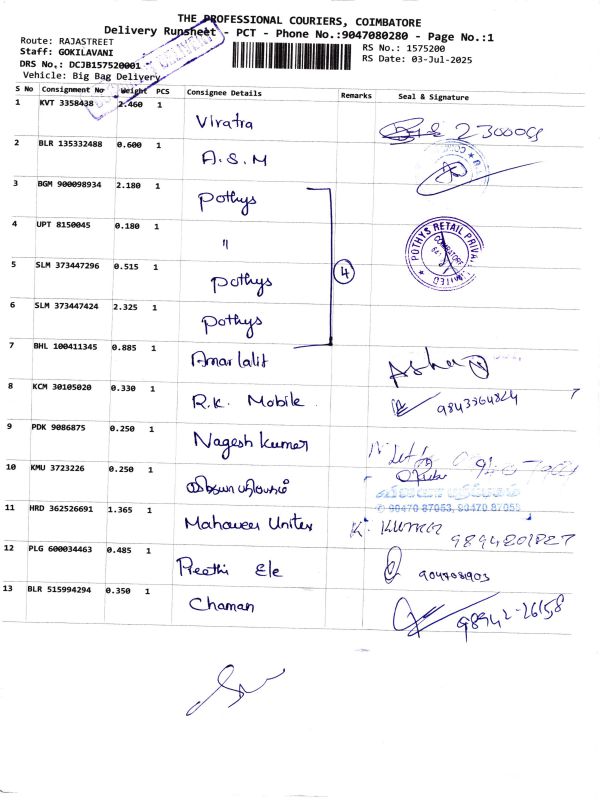 THE PROFESSIONAL COURIERS, COIMBATORE
Delivery Runsheet - PCT - Phone No.:9047080280 - Page No.:1
Route: RAJASTREET
RS No.: 1575200
Staff: GOKILAVANI
RS Date: 03-Jul-2025
DRS No.: DCJB157520001
Vehicle: Big Bag Delivery
S No Consignment No Weight PCS Consignee Details Remarks Seal & Signature
1 KVT 3358438 2.460 1 Viratra 230009
2 BLR 135332488 0.600 1 A.S.M
3 BGM 900098934 2.180 1 Pothys
4 UPT 8150045 0.180 1 "
POTHYS RETAIL PRIVATE LIMITED
COIMBATORE
5 SLM 373447296 0.515 1 Pothys
4
6 SLM 373447424 2.325 1 Pothys
7 BHL 100411345 0.885 1 Amar lalit
8 KCM 30105020 0.330 1 R.K. Mobile 9843364824
9 PDK 9086875 0.250 1 Nagesh Kumar
10 KMU 3723226 0.250 1
© 90470 87053, 90470 87055
11 HRD 362526691 1.365 1 Mahaveer Unitex K. KUMAR 9894201827
12 PLG 600034463 0.485 1 Preethi Ele 9047081903
13 BLR 515994294 0.350 1 Chaman 98942-26158